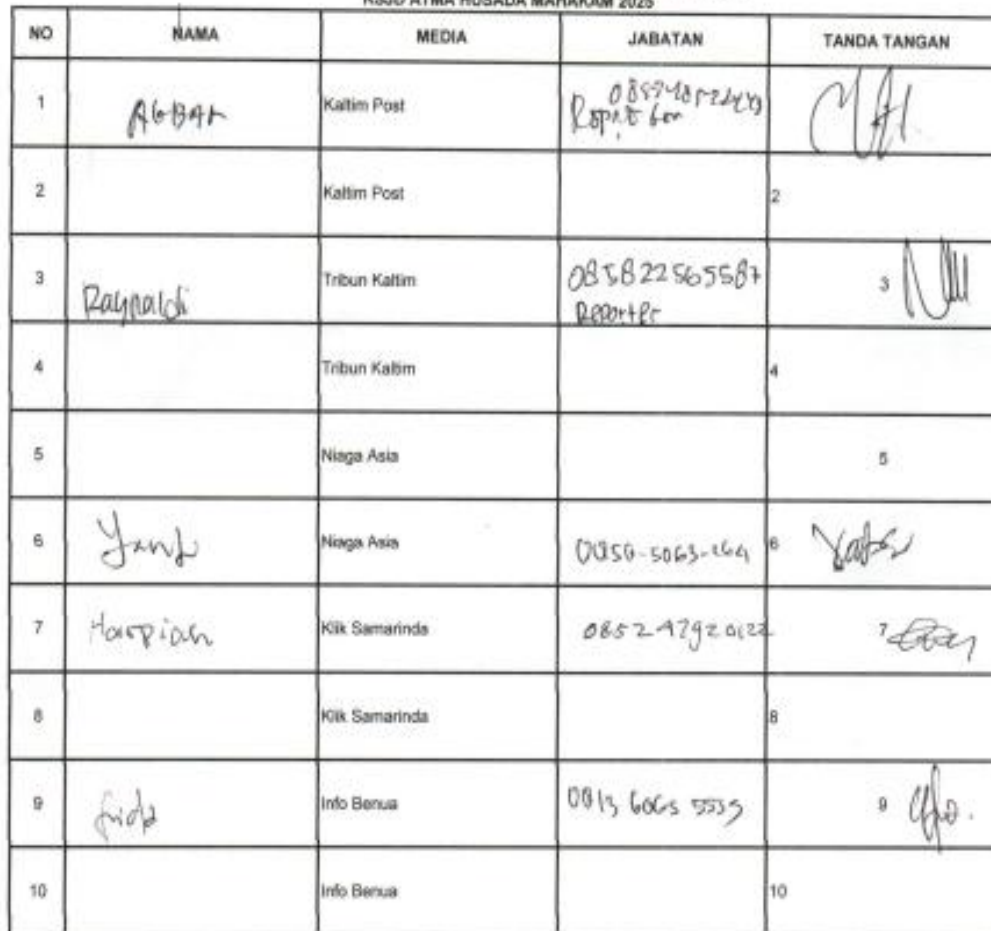 RSJD ATMA HUSADA MAHAKAM 2025
NO NAMA MEDIA JABATAN TANDA TANGAN
1 AKBAR Kaltim Post
2 Kaltim Post 2
3 Raynaldi Tribun Kaltim 085822565587 3
Reporter
4 Tribun Kaltim 4
5 Niaga Asia 5
6 Niaga Asia 6
7 Harpiah Klik Samarinda 7
8 Klik Samarinda 8
9 Frida Info Benua 9
10 Info Benua 10